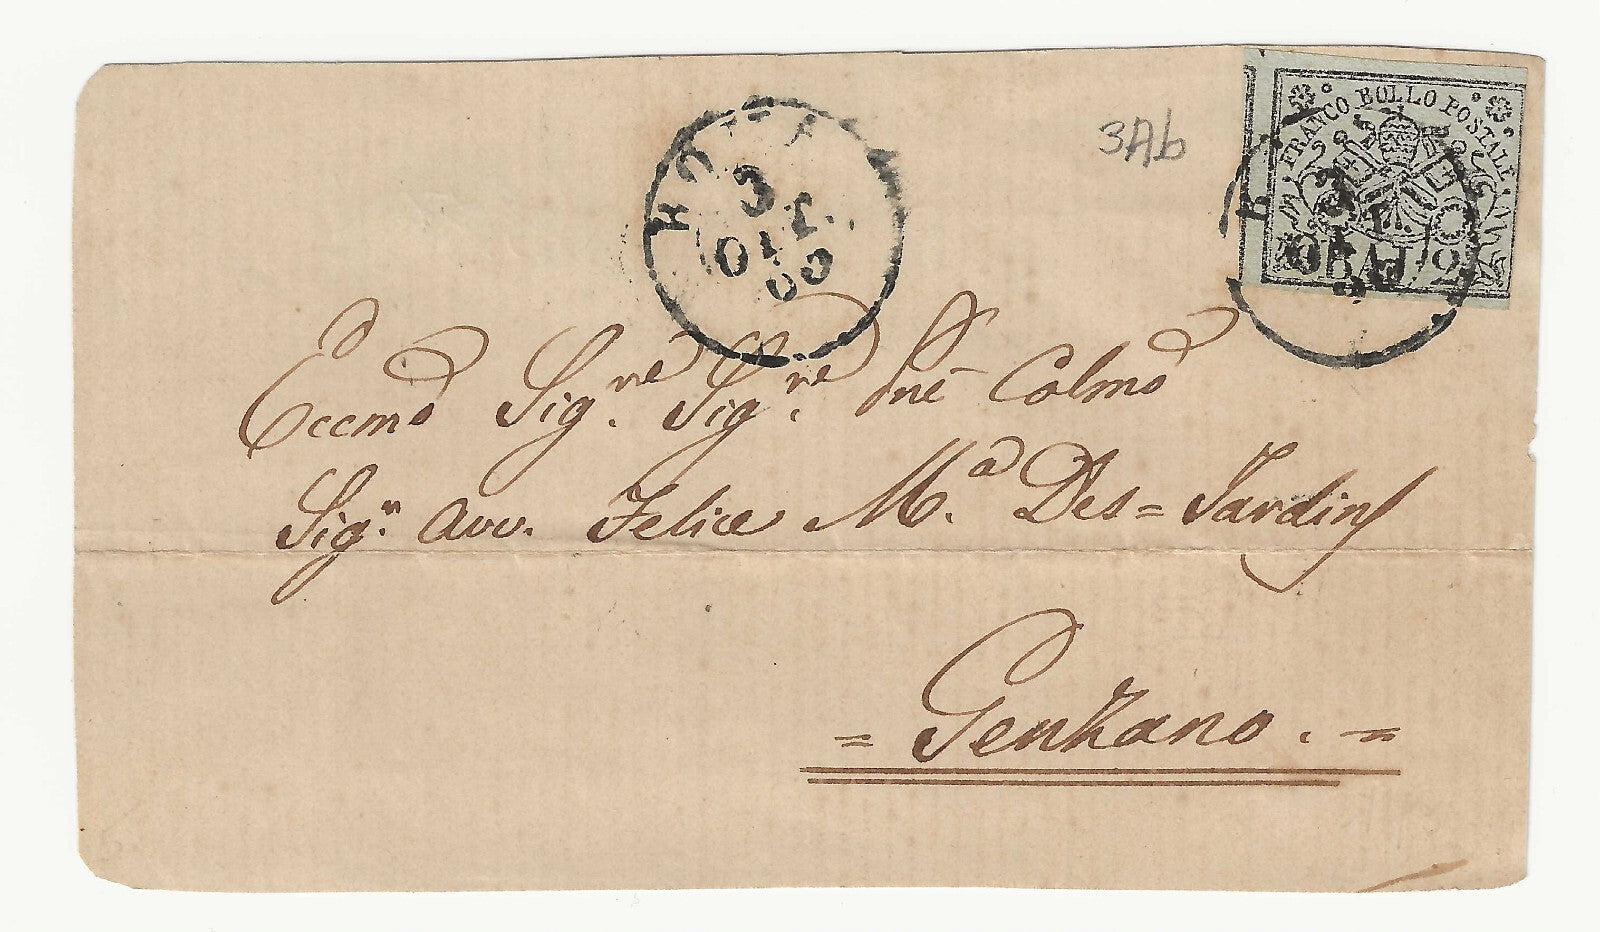 3Ab
FRANCO BOLLO POSTALE
BAJ 2
ROMA
OTT
60
Eccmo Sigre Sigre Pne Colmo
Sigr Avv. Felice Ma. Des=Jardins
= Genzano. =